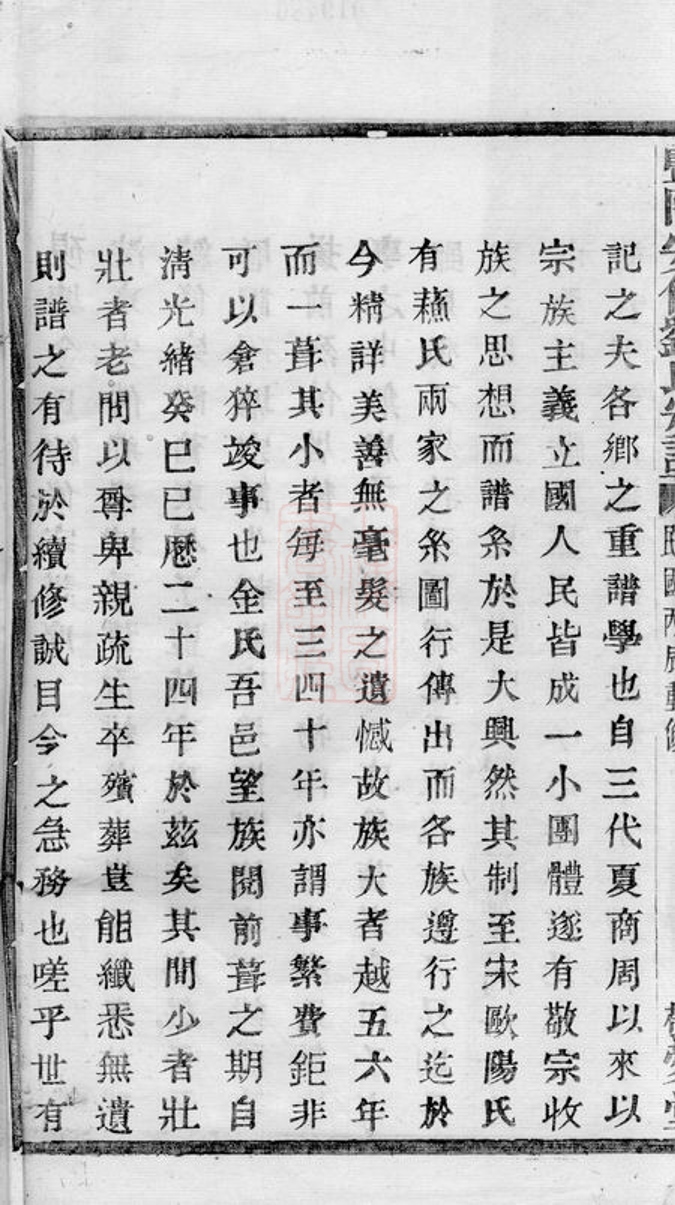 記之夫各鄉之重譜學也自三代夏商周以來以
宗族主義立國人民皆成一小團體遂有敬宗收
族之思想而譜系於是大興然其制至宋歐陽氏
有蘇氏兩家之系圖行傳出而各族遵行之迄於
今精詳美善無毫髮之遺憾故族大者越五六年
而一葺其小者每至三四十年亦謂事繁費鉅非
可以倉猝竣事也金氏吾邑望族閱前葺之期自
淸光緒癸巳已歷二十四年於茲矣其間少者壯
壯者老問以尊卑親疏生卒殯葬豈能纖悉無遺
則譜之有待於續修誠目今之急務也嗟乎世有